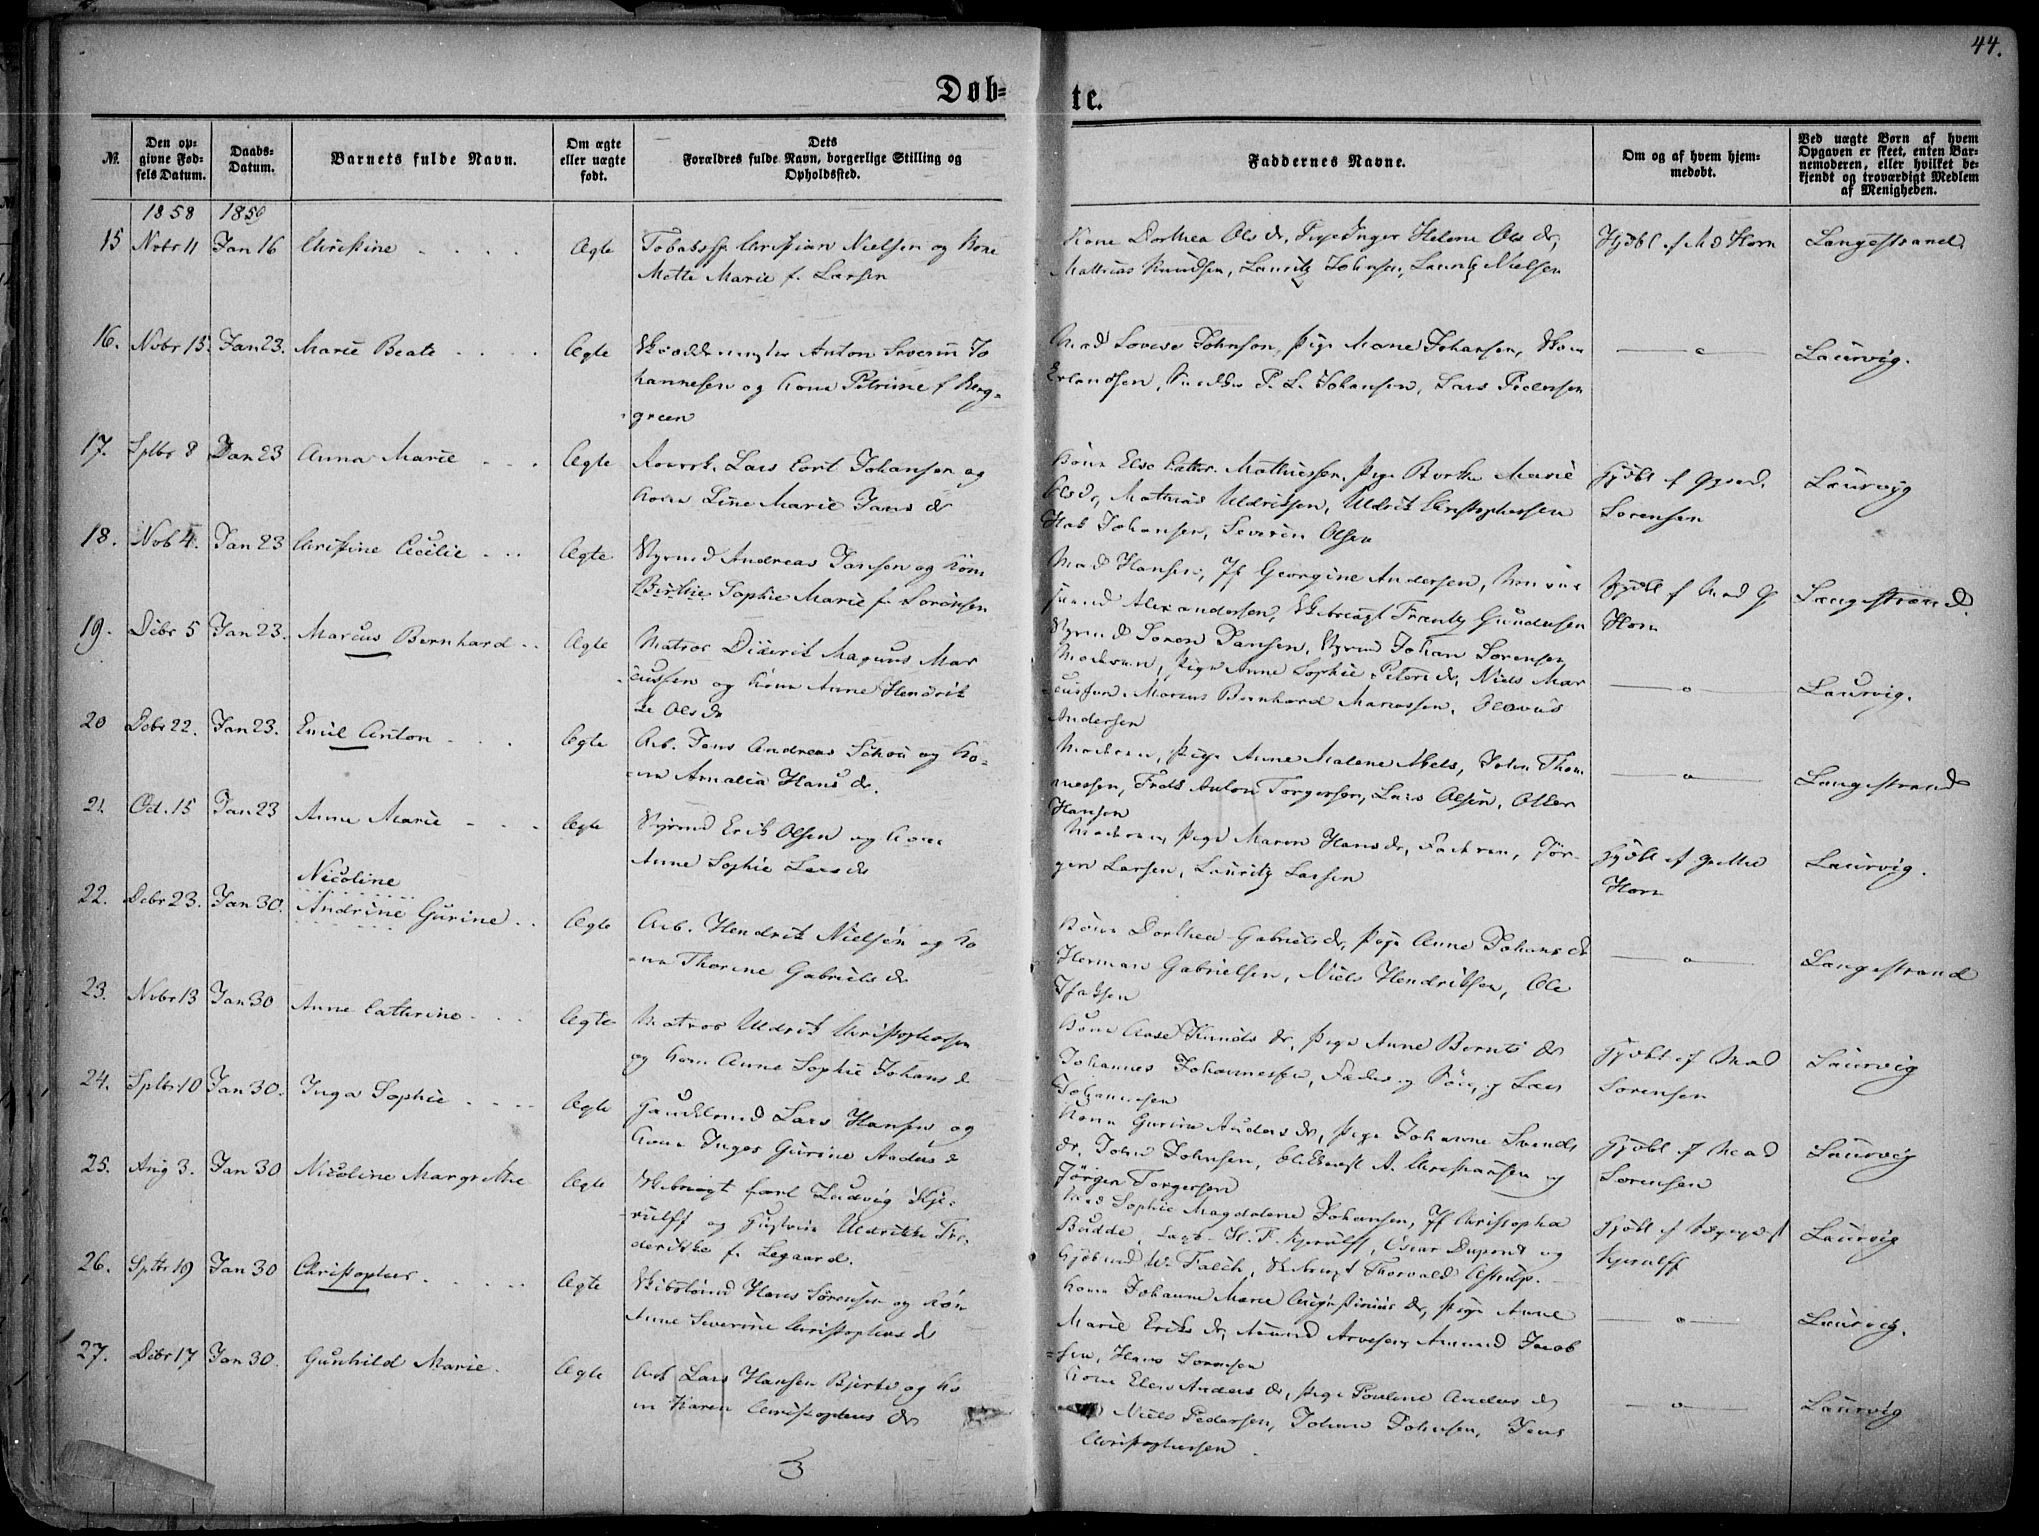 44.
Døb=
te.
№.
Den op=
givne Fød=
sels Datum.
Daabs=
Datum.
Barnets fulde Navn.
Om ægte
eller uægte
født.
Dets
Forældres fulde Navn, borgerlige Stilling og
Opholdssted.
Faddernes Navne.
Om og af hvem hjem=
medøbt.
Ved uægte Børn af hvem
Opgaven er skeet, enten Bar=
nemoderen, eller hvilket be=
kjendt og troværdigt Medlem
af Menigheden.
1858 1859
15 Nobr 11 Jan 16 Christine Ægte Christian Nielsen og Kone
Mette Marie f. Larsen
Kone Dorthea Ols dr, Pige Inger Helene Ols dr,
Mathias Knudsen, Lauritz Johnsen, Lauritz Nielsen
Hjdbt af Md Horn
Langestrand
16. Nobr 15. Jan 23. Marie Beate Ægte Anton Severin Jo
hannesen og Kone Petrine f. Berg=
green
Mad Lovise Johnsen, Pige Marie Johansen,
Erlandsen, P. L. Johansen, Lars Pedersen
Laurvig.
17. Sptbr 8 Jan 23 Anna Marie Ægte Lars Cort Johansen og
Kone Line Marie Jans dr
Kone Else Cathr. Mathiesen, Pige Berthe Marie
Ols dr, Mathias Uldriksen, Uldrik Christophersen
Johansen, Severin Olsen
Hjdbt af
Sørensen
Laurvig
18. Nob 4. Jan 23 Christine Cecilie Ægte Styrmd Andreas Jansen og Kone
Birthe Sophie Marie f. Sørensen
Mad Hansen, Jf Georgine Andersen,
Alexandersen, Skibsrigt Frantz Gundersen
Styrmd Søren Jansen, Styrmd Johan Sørensen
Hjdbt af Mad
Horn
Langestrand.
19. Debr 5 Jan 23. Marcus Bernhard Ægte Matros Diderik Magnus Mar
cussen og Kone Anne Hendrik
ke Ols dr
Moderen, Pige Anne Sophie Peters dr, Niels Mar
cussen, Marcus Bernhard Marcussen,
Andersen
Laurvig.
20 Debr 22. Jan 23. Emil Anton Ægte Arb. Jens Andreas Schou og Ko=
ne Amalia Hans dr.
Moderen, Pige Anne Malene Abels, John Thom
mesen, Fredr Anton Torgersen, Lars Olsen,
Hansen
Langestrand
21. Oct. 15 Jan 23 Anne Marie Ægte Styrmd Erik Olsen og Kone
Anne Sophie Lars dr
Moderen, Pige Maren Hans dr, Faderen, Jør=
gen Larsen, Lauritz Larsen
Hjdbt af
Horn
Laurvig.
22. Debr 23. Jan 30. Nicoline
Andrine Gurine Ægte Arb. Hendrik Nielsen og Ko
ne Thorine Gabriels dr
Kone Dorthea Gabriels dr, Pige Anne Johans dr
Herman Gabrielsen, Niels Hendriksen, Ole
Isaksen
Langestrand
23. Nobr 13 Jan 30 Anne Cathrine Ægte Matros Uldrik Christophersen
og Kone Anne Sophie Johans dr
Kone Aase Knuds dr, Pige Anne Bernts dr
Johannes Johannessen, Lars
Johannesen
Hjdbt af Mad
Sørensen
Laurvig
24. Sptbr 10 Jan 30. Inga Sophie Ægte Lars Hansen og
Kone Inger Gurine Anders dr
Kone Gurine Anders dr, Pige Johanne Svends
dr, John Johnsen, A. Christiansen og
Jørgen Torgersen
Hjdbt af Mad
Sørensen
Laurvig
25. Aug 3. Jan 30 Nicoline Margrethe Ægte Skibsrigt Carl Ludvig Kje=
rulff og Uldrikke Fre=
derikke f. Legaard.
Mad Sophie Magdalene Johansen, Jf Christopha
Budde, H. F. Kjerulff, Oscar Dupont og
W. Falch, Thorvald Astrup.
Hjdbt af
Kjerulff
Laurvig
26. Sptbr 19 Jan 30 Christopher Ægte Hans Sørensen og Kone
Anne Severine Christophers dr
Kone Johanne Marie dr, Pige Anne
Marie Eriks dr, Amund Arvesen, Amund Jacob
sen, Hans Sørensen
Laurvig.
27. Debr 17 Jan 30. Gunhild Marie. Ægte Arb Lars Hansen Bjerke og Ko
ne Karen Christophers dr
Kone Elen Anders dr, Pige Pouline Anders dr
Niels Pedersen, Johan Johnsen, Jens
Christophersen.
Laurvig
3